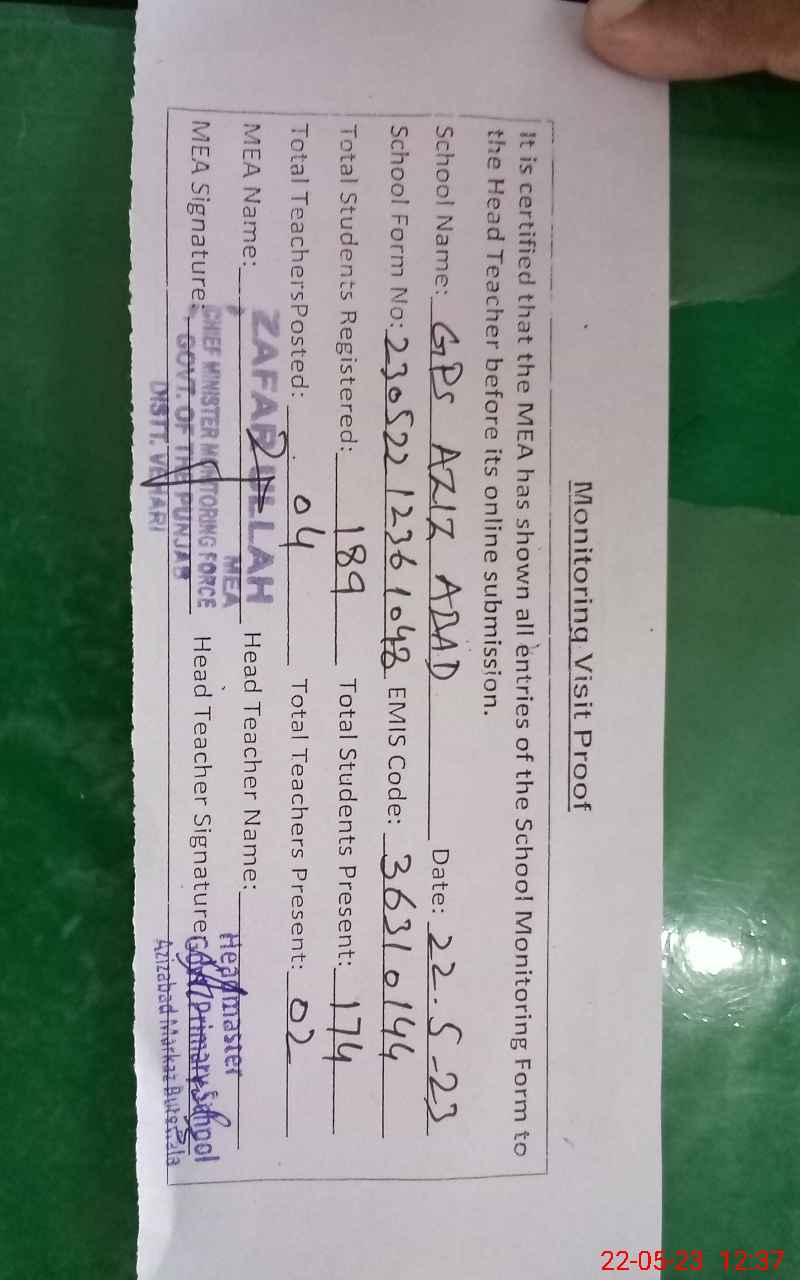 Monitoring Visit Proof
It is certified that the MEA has shown all entries of the School Monitoring Form to
the Head Teacher before its online submission.
School Name: GPS AZIZ ABAD Date: 22-5-23
School Form No: 230522 12361048 EMIS Code: 36310144
Total Students Registered: 189 Total Students Present: 174
Total TeachersPosted: 04 Total Teachers Present: 02
MEA Name: ZAFAR ULLAH Head Teacher Name:
MEA
MEA Signature: Head Teacher Signature:
CHIEF MINISTER MONITORING FORCE
GOVT. OF THE PUNJAB
DISTT. VEHARI
Headmaster
Govt Primary School
Azizabad Markaz Burewala
22-05-23 12:37